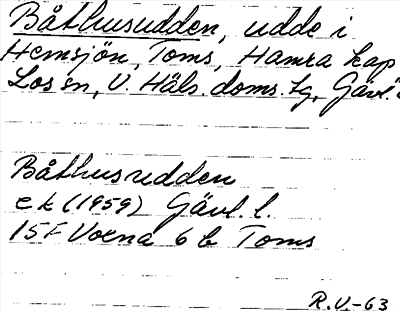 Båthusudden, udde i
Hemsjön, Toms, Hamra kap
Los sn, V. Häls. doms. tg, Gävl.
Båthusudden
ek (1959) Gävl. l.
15F Voxna 6 b Toms
R.U.-63